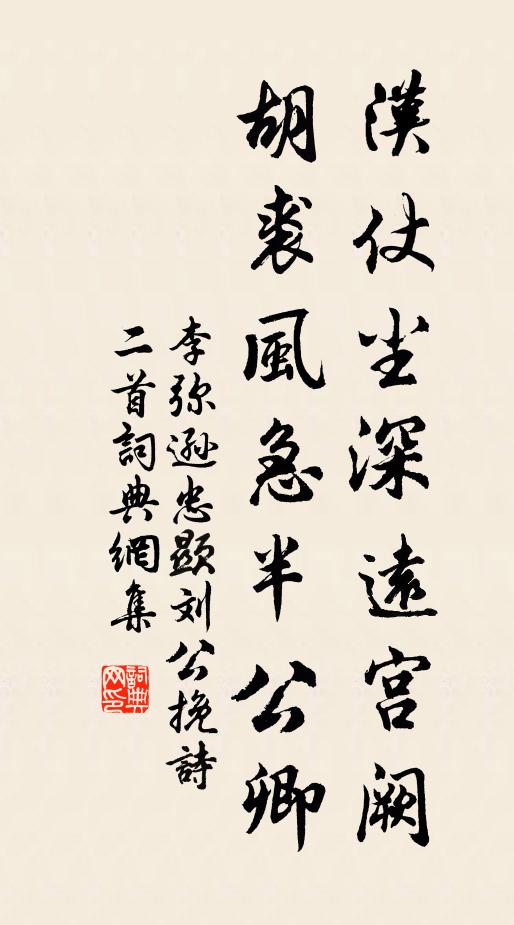 漢仗尘深遠宫阙
胡裘風急半公卿
李弥遜忠顯刘公挽詩
二首詞典網集
詞典网印